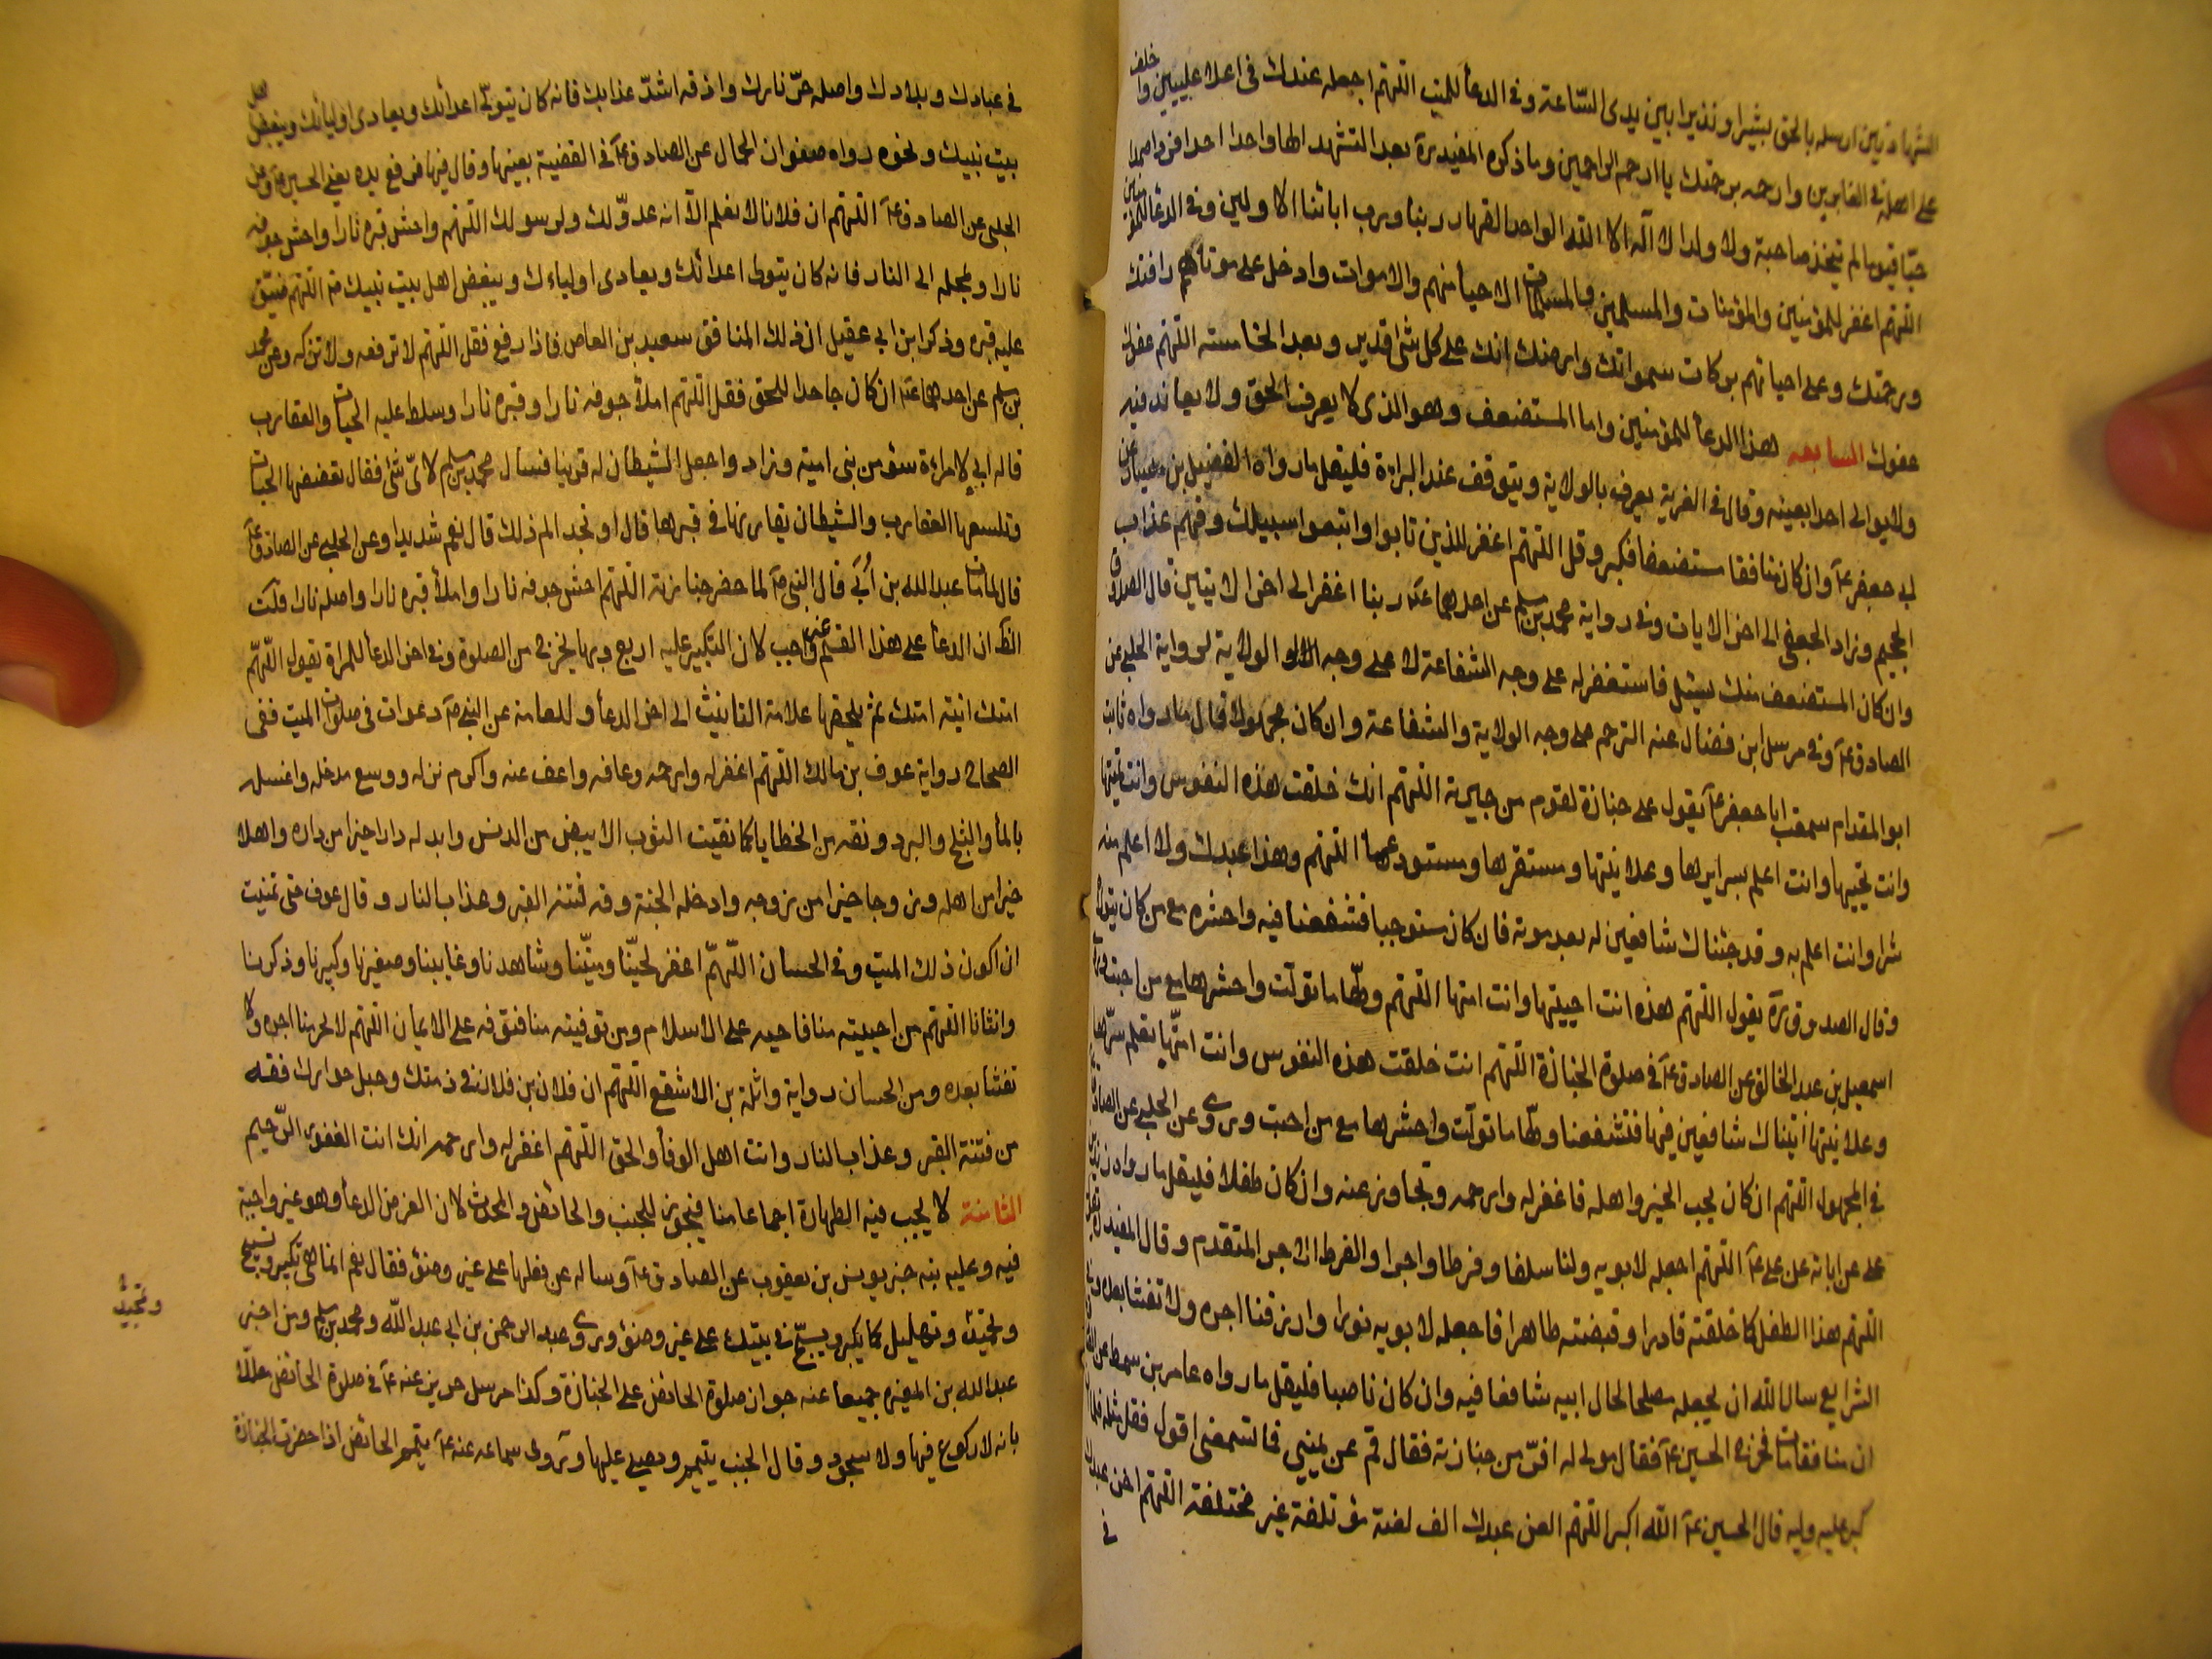 الشهادتين ارسله بالحق بشيرا ونذيرا بين يدى الساعة وفى الدعأ للميت اللهم اجعله عندك فى اعلا عليين واخلف
على اهله فى الغابرين وارحمه برحمتك يا ارحم الراحمين وما ذكره المفيد ره بعد التشهد الها واحدا احدا فردا صمدا
حيا قيوما لم يتخذ صاحبة ولا ولدا لا اله الا الله الواحد القهار ربنا ورب ابائنا الاولين وفى الدعأ للمؤمنين
اللهم اغفر للمؤمنين والمؤمنات والمسلمين والمسلمات الاحيأ منهم والاموات وادخل على موتاهم رافتك
ورحمتك وعلى احيائهم بركات سمواتك وارضك انك على كل شئ قدير وبعد الخامسة اللهم عفوك
عفوك السابعه هذا الدعأ للمؤمنين واما المستضعف وهو الذى لا يعرف الحق ولا يعاند فيه
ولا يوالى احدا بعينه وقال فى الغرية يعرف بالولاية ويتوقف عند البرائة فليقل ما رواه الفضيل بن يسار عن
ابى جعفر عآ وان كان منافقا مستضعفا فكبر وقل اللهم اغفر للذين تابوا واتبعوا سبيلك وقهم عذاب
الجحيم وزاد الجعفى الى اخر الايات وفى رواية محمد بن مسلم عن احدهما عآ ربنا اغفر الى اخر الايتين قال الصادق
وان كان المستضعف منك بسبيل فاستغفر له على وجه الشفاعة لا على وجه الولاية لرواية الحلبى عن
الصادق عآ وفى مرسل ابن فضال عنه الترحم على وجه الولاية والشفاعة وان كان مجهولا قال ما رواه ثابت
ابو المقدام سمعت ابا جعفر عآ يقول على جنازة لقوم من جيرته اللهم انك خلقت هذه النفوس وانت تميتها
وانت تحييها وانت اعلم بسرايرها وعلانيتها ومستقرها ومستودعها اللهم وهذا عبدك ولا اعلم منه
شرا وانت اعلم به وقد جئناك شافعين له بعد موته فان كان مستوجبا فشفعنا فيه واحشره مع من كان يتولاه
وقال الصدوق ره يقول اللهم هذه انت احييتها وانت امتها اللهم ولها ما تولت واحشرها مع من احبت
اسمعيل بن عبد الخالق عن الصادق عآ فى صلوة الجنازة اللهم انت خلقت هذه النفوس وانت امتها تعلم سرها
وعلانيتها اتيناك شافعين فيها فشفعنا ولها ما تولت واحشرها مع من احبت وروى عن الحلبى عن الصادق
فى المجهول اللهم ان كان يحب الخير واهله فاغفر له وارحمه وتجاوز عنه وان كان طفلا فليقل ما رواه زيد بن
على عن ابائه عن على عآ اللهم اجعله لابويه ولنا سلفا وفرطا واجرا والفرط الاجر المتقدم وقال المفيد
اللهم هذا الطفل كما خلقته قادرا وقبضته طاهرا فاجعله لابويه نورا وارزقنا اجره ولا تفتنا بعده
الشرايع سال الله ان يجعله مصلحا لحال ابيه شافعا فيه وان كان ناصبا فليقل ما رواه عامر بن سمط عن
ان منافقا مات فخرج الحسين عآ فقال مولى له افر من جنازته فقال قم عن يمينى فما تسمعنى اقول فقل مثله فلما ان
كبر عليه وليه قال الحسين عآ الله اكبر اللهم العن عبدك الف لعنة مؤتلفة غير مختلفة اللهم اخز عبدك
فى
فى عبادك وبلادك واصله حر نارك واذقه اشد عذابك فانه كان يتولى اعدائك ويعادى اوليائك ويبغض اهل
بيت نبيك ونحوه رواه صفوان الجمال عن الصادق عآ فى القضية بعينها وقال فيها فرفع يده يعنى الحسين عآ وعن
الحلبى عن الصادق عآ اللهم ان فلانا لا نعلم الا انه عدو لك ولرسولك اللهم واحش قبره نارا واحش جوفه
نارا وعجله الى النار فانه كان يتولى اعدائك ويعادى اولياءك ويبغض اهل بيت نبيك مه اللهم ضيق
عليه قبره وذكر ابن ابى عقيل ان ذلك المنافق سعيد بن العاص فاذا رفع فقل اللهم لا ترفعه ولا تزكه وعن محمد
بن مسلم عن احدهما عآ ان كان جاحدا للحق فقل اللهم املأ جوفه نارا وقبره نارا وسلط عليه الحيات والعقارب
قاله ابى لامراءة سوء من بنى امية وزاد واجعل الشيطان له قرينا فسال محمد بن مسلم لاى شئ فقال تعضضها الحيات
وتلسعها العقارب والشيطان يقارنها فى قبرها قال او تجد الم ذلك قال نعم شديدا وعن الحلبى عن الصادق عآ
قال لما مات عبد الله بن اُبَي قال النبى صآ لما حضر جنازته اللهم احش جوفه نارا واملأ قبره نارا واصله نارا قلت
الظ ان الدعأ على هذا القسم غير واجب لان التكبير عليه اربع وبها يخرج من الصلوة وفى اخر الدعأ للمراة تقول اللهم
امتك ابنة امتك ثم يلحقها علامة التانيث الى اخر الدعأ وللعامة عن النبى صآ دعوات فى صلوات الميت ففى
الصحاح رواية عوف بن مالك اللهم اغفر له وارحمه وعافه واعف عنه واكرم نزله ووسع مدخله واغسله
بالمأ والثلج والبرد ونقه من الخطايا كما نقيت الثوب الابيض من الدنس وابدله دارا خيرا من داره واهلا
خيرا من اهله وزوجا خيرا من زوجه وادخله الجنة وقه فتنه القبر وعذاب النار وقال عوف حتى تمنيت
ان اكون ذلك الميت وفى الحسان اللهم اغفر لحينا وميتنا وشاهدنا وغايبنا وصغيرنا وكبيرنا وذكرنا
وانثانا اللهم من احييته منا فاحيه على الاسلام ومن توفيته منا فتوفه على الايمان اللهم لا تحرمنا اجره ولا
تفتنا بعده ومن الحسان رواية واثلة بن الاسقع اللهم ان فلان بن فلان فى ذمتك وحبل جوارك فقه
من فتنة القبر وعذاب النار وانت اهل الوفأ والحق اللهم اغفر له وارحمه انك انت الغفور الرحيم
الثامنة لا يجب فيه الطهارة اجماعا منا فيجوز للجنب والحائض والمحدث لان الغرض الدعأ وهو غير واجبة
فيه وعليه نبه خبر يونس بن يعقوب عن الصادق عآ وساله عن فعلها على غير وضؤ فقال نعم انما هى تكبير وتسبيح
وتحميد وتهليل كما يكبر ويسبح فى بيتك على غير وضؤ وروى عبد الرحمن بن ابى عبد الله ومحمد بن مسلم ومن اخبر
وتمجيد
عبد الله بن المغيره جميعا عنه جواز صلوة الحائض على الجنازة وكذا مرسل حريز عنه عآ فى صلوة الحائض معللا
بانه لا ركوع فيها ولا سجود وقال الجنب يتيمم ويصلى عليها وروى سماعه عنه عآ يتيمم الحائض اذا حضرت الجنازة